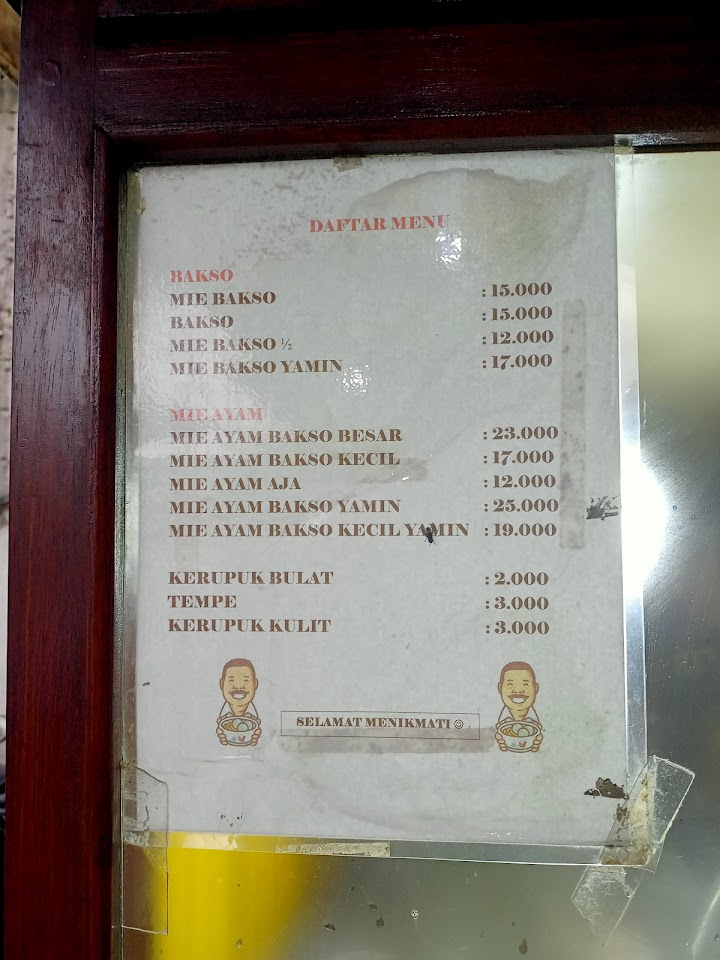 DAFTAR MENU
BAKSO
MIE BAKSO : 15.000
BAKSO : 15.000
MIE BAKSO ½ : 12.000
MIE BAKSO YAMIN : 17.000
MIE AYAM
MIE AYAM BAKSO BESAR : 23.000
MIE AYAM BAKSO KECIL : 17.000
MIE AYAM AJA : 12.000
MIE AYAM BAKSO YAMIN : 25.000
MIE AYAM BAKSO KECIL YAMIN : 19.000
KERUPUK BULAT : 2.000
TEMPE : 3.000
KERUPUK KULIT : 3.000
SELAMAT MENIKMATI ☺ .